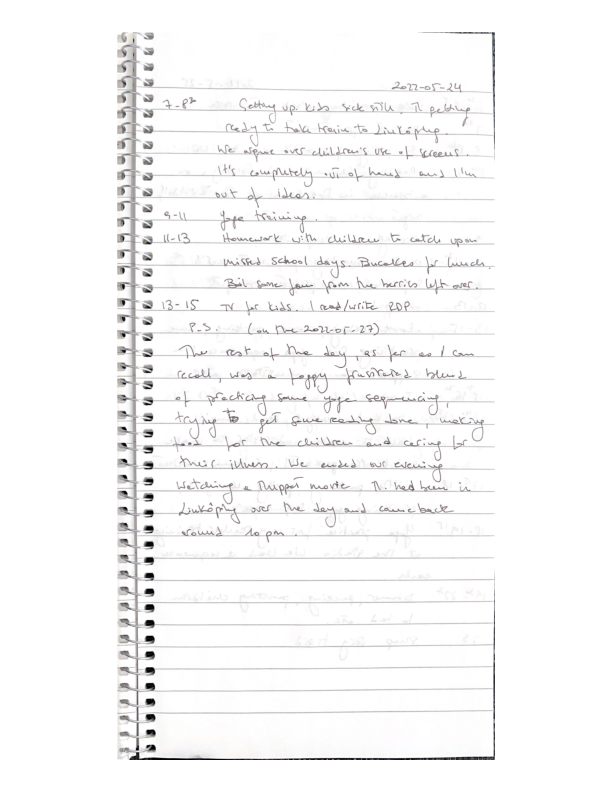 2022-05-24
7-8³ Getting up. Kids sick still. Th. getting
ready to take train to Linköping.
We argue over children's use of screens.
It's completely out of hand and I'm
out of ideas.
9-11 Yoga training.
11-13 Homework with children to catch up on
missed school days. Pancakes for lunch.
Boil some jam from the berries left over.
13-15 TV for kids. I read/write
P.S. (on the 2022-05-27)
The rest of the day, as far as I can
recall, was a foggy frustrated blend
of practicing some yoga sequencing,
trying to get some reading done, making
food for the children and caring for
their illness. We ended our evening
Watching a Muppet movie. Th. had been in
Linköping over the day and came back
around 10 pm.